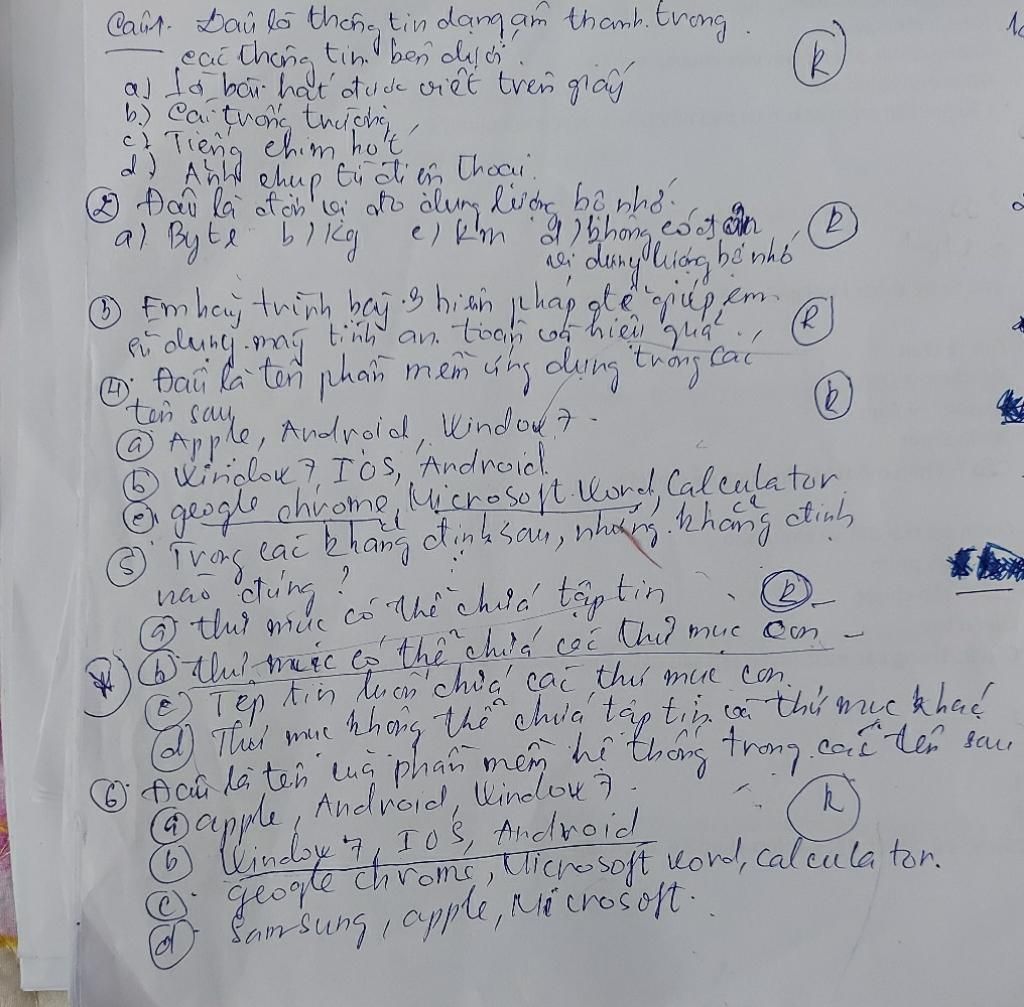 Câu1. Đâu là thông tin dạng âm thanh. trong
các thông tin bên dưới.
a) Lời bài hát được viết trên giấy
b.) Cái trống trường
c) Tiếng chim hót
d) Ảnh chụp từ điện thoại.
(R)
② Đâu là đơn vị đo dung lượng bộ nhớ.
a) Byte b) kg c) km d) không có đơn
vị dung lượng bộ nhớ
(R)
③ Em hãy trình bày 3 biện pháp để giúp em
sử dụng máy tính an toàn và hiệu quả.
(R)
④ Đâu là tên phần mềm ứng dụng trong các
tên sau
(R)
ⓐ Apple, Android, Window 7.
ⓑ Window 7, IOS, Android.
ⓒ geogle chrome, Microsoft Word, Calculator
⑤ Trong các khẳng định sau, những khẳng định
nào đúng?
(R)
ⓐ thư mục có thể chứa tập tin
ⓑ thư mục có thể chứa các thư mục con
ⓒ Tệp tin luôn chứa các thư mục con.
ⓓ Thư mục không thể chứa tập tin và thư mục khác
⑥ Đâu là tên của phần mềm hệ thống trong các tên sau
ⓐ apple, Android, Window 7.
(R)
ⓑ Window 7, IOS, Android
ⓒ geogle chrome, Microsoft word, calculator.
ⓓ Samsung, apple, Microsoft.